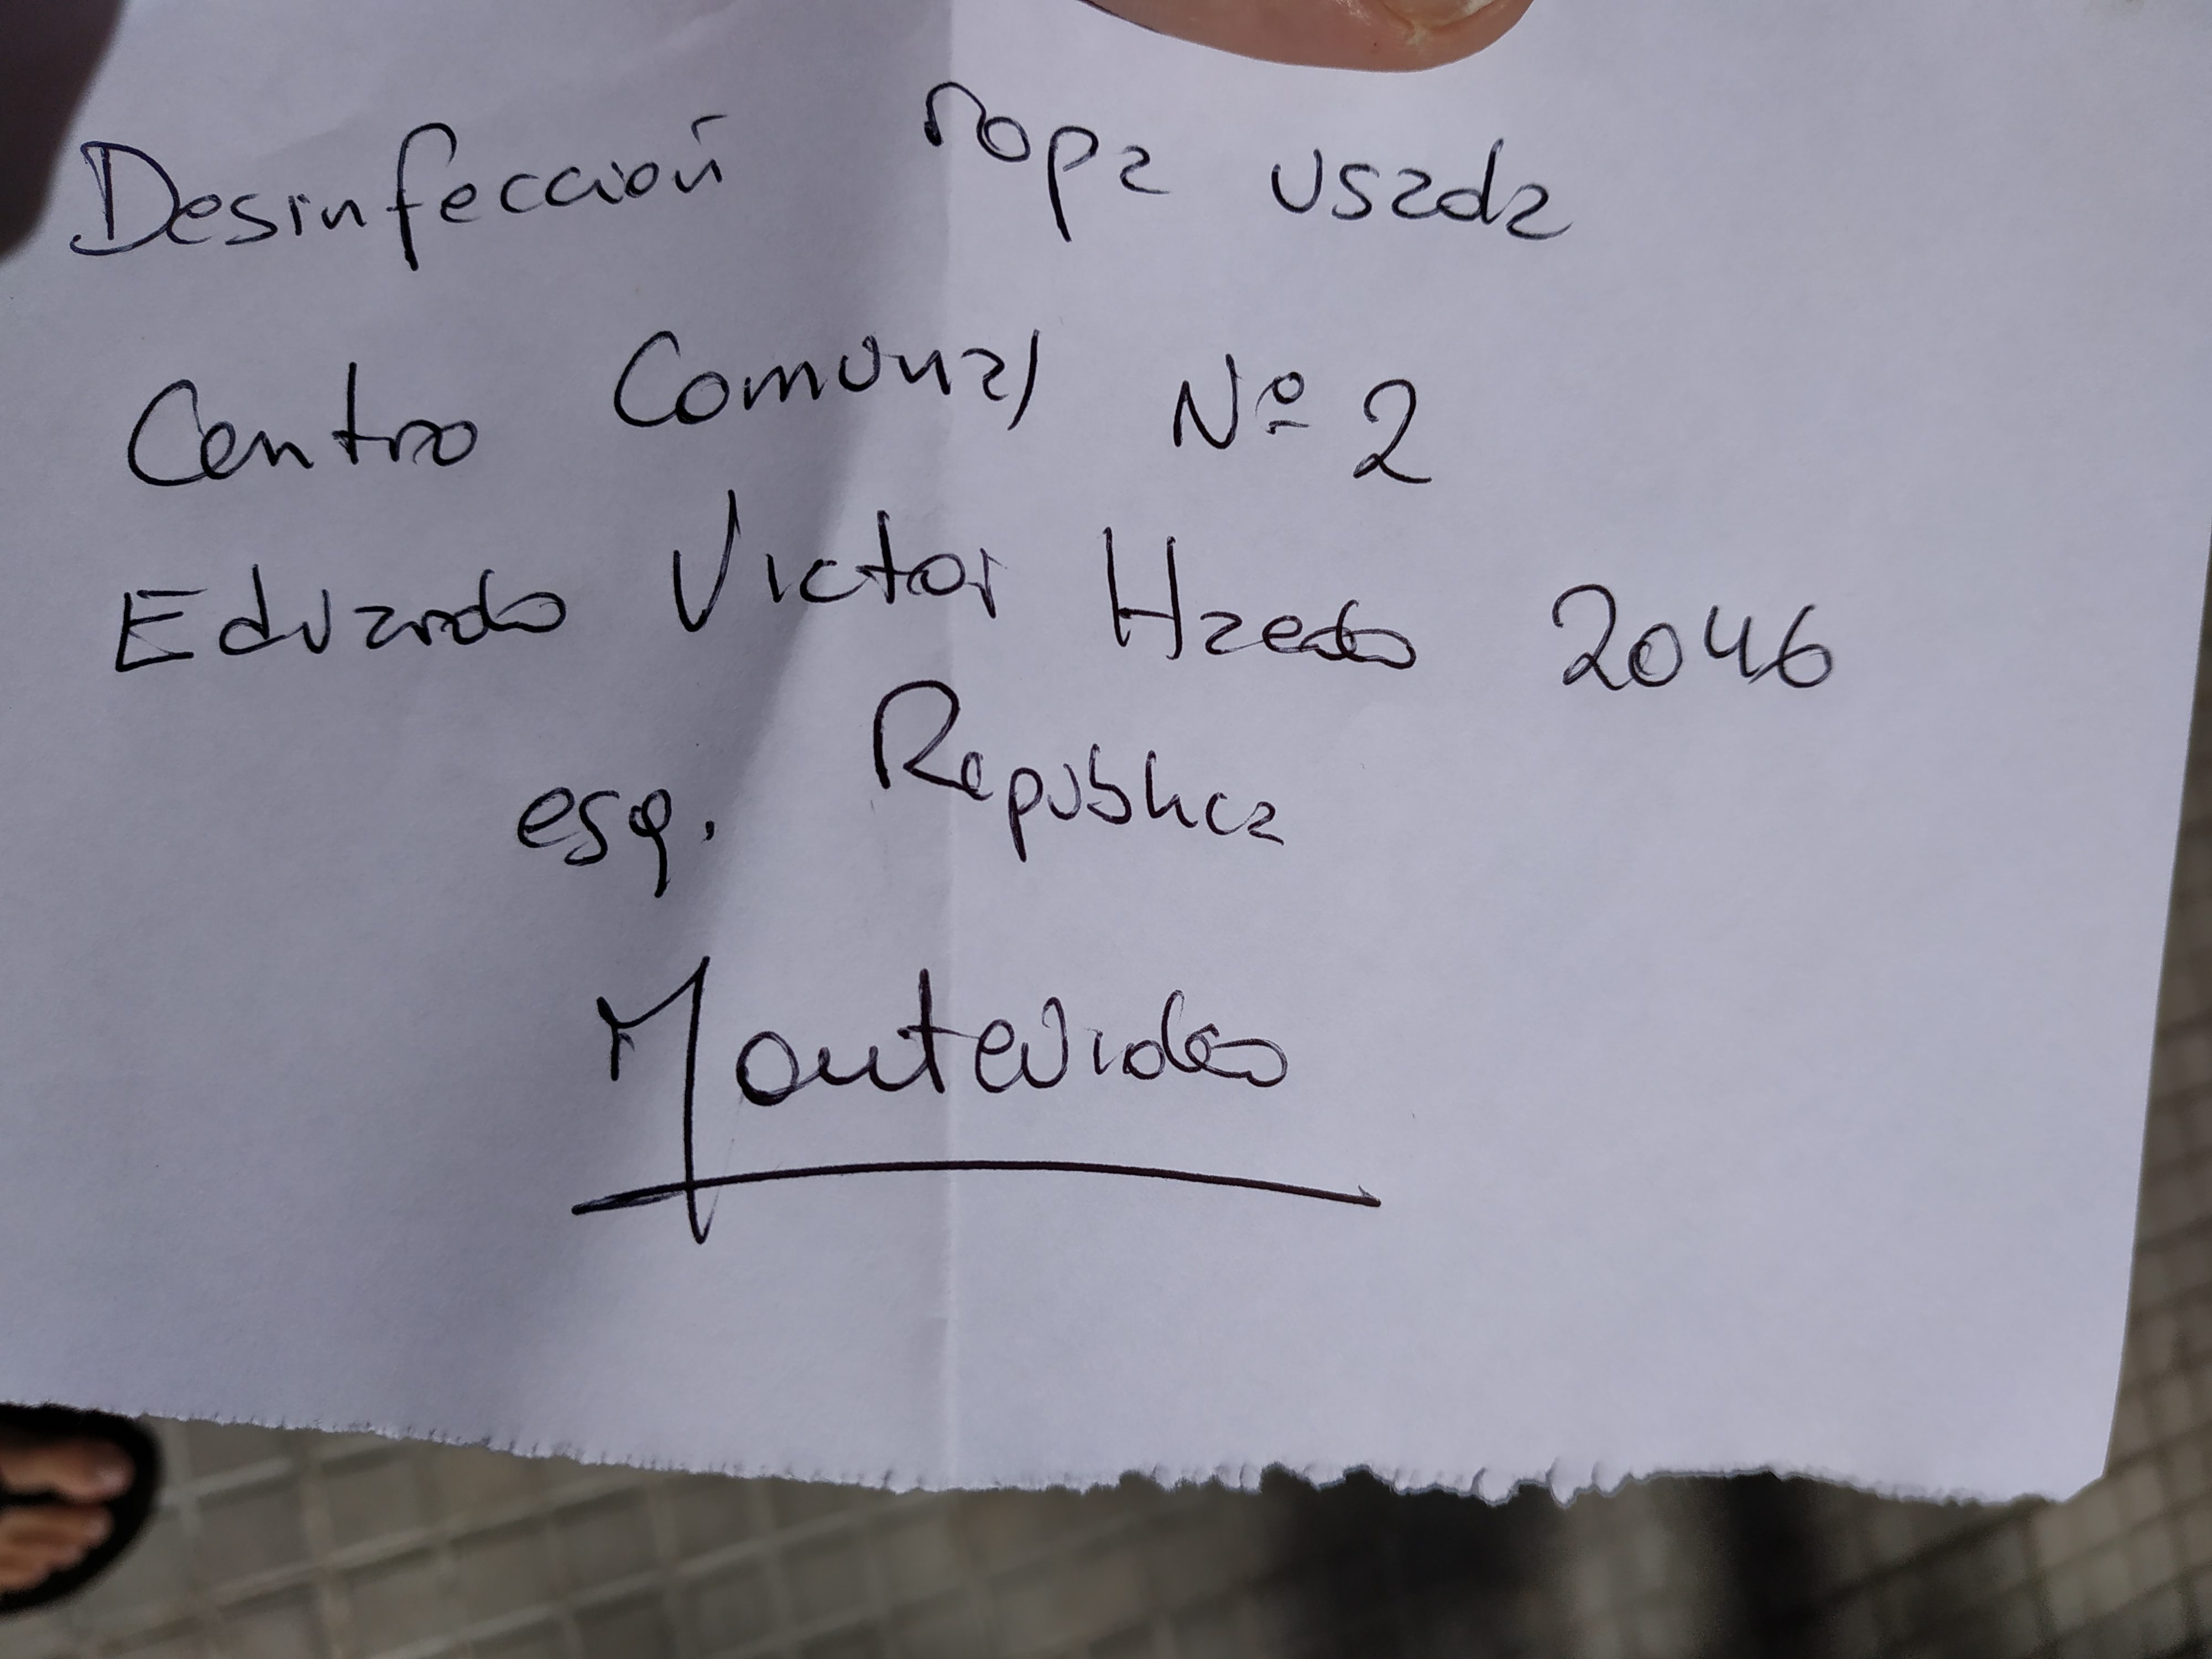 Desinfección ropa usada
Centro Comunal Nº 2
Eduardo Victor Haedo 2046
esq. Republica
Montevideo